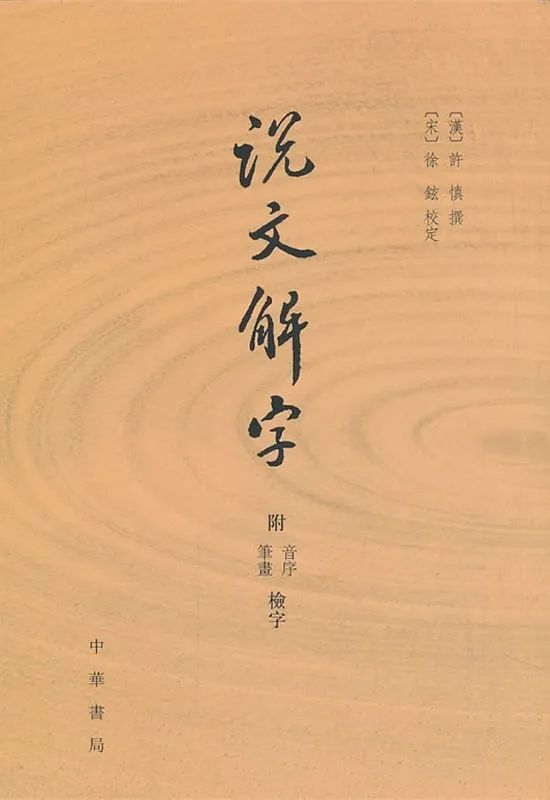 〔漢〕許慎撰
〔宋〕徐鉉校定
説文解字
附
音序
筆畫
檢字
中華書局